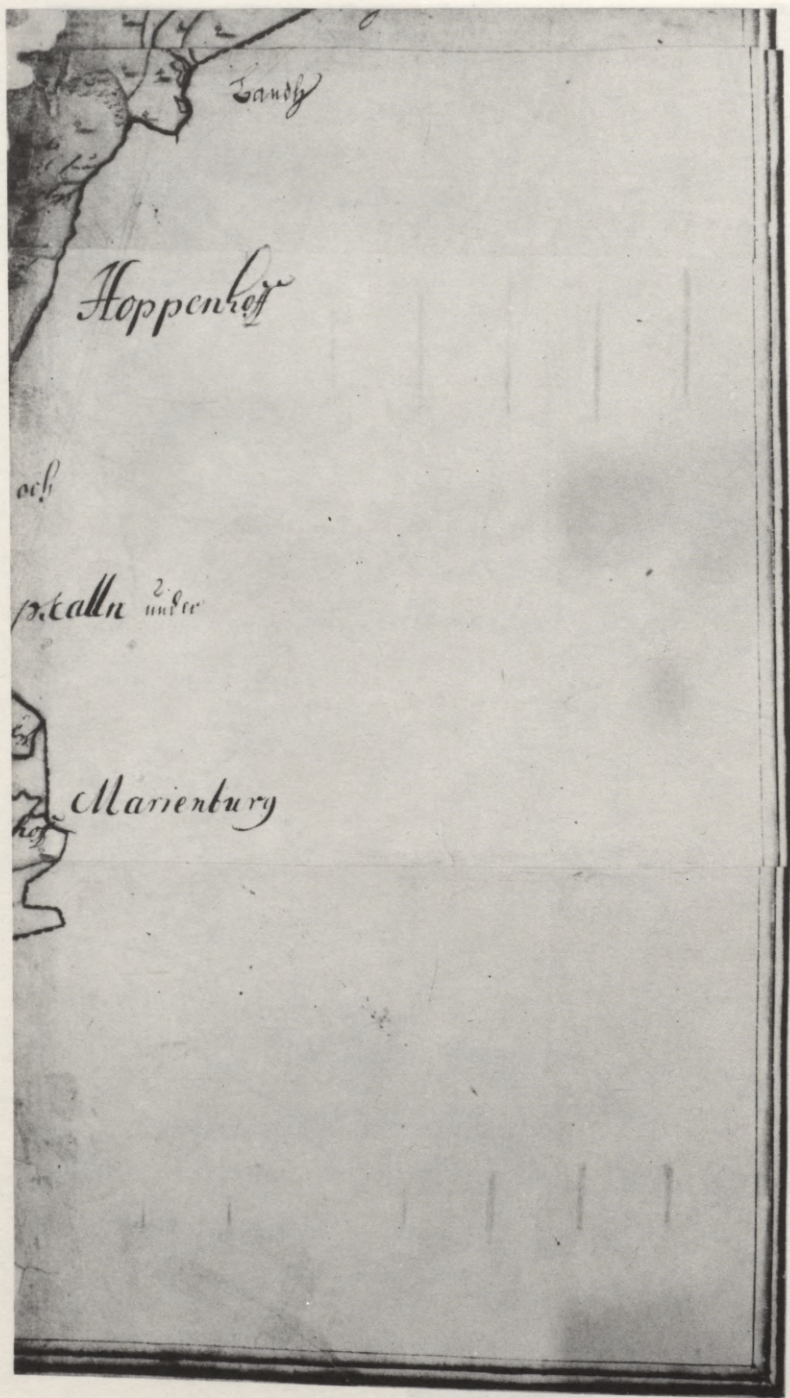 Landh
Hoppenhoff
och
pkalln under
Marienburg
hoff